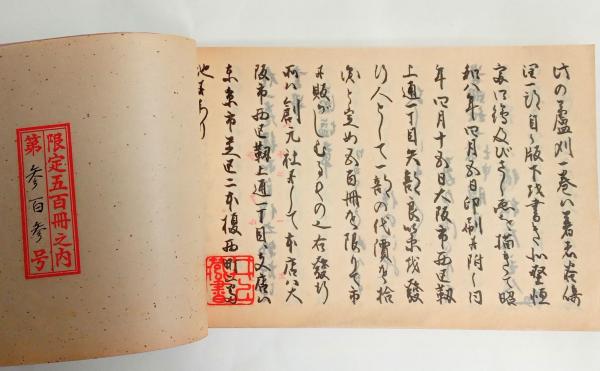 此の蘆刈一巻は著者谷崎
潤一郎自ら版下を書き北野恒
富口絵及びさし画を描きて昭
和八年四月五日印刷に附し同
年四月十五日大阪市西區靱
上通一丁目矢部良策を發
行人として一部の代價を拾
圓と定め五百冊を限りて市
に販がしむるもの也發行
所は創元社にして本店は大
阪市西區靱上通一丁目支店は
東京市芝區二本榎西町
地にあり
限定五百冊之内
第参百参号